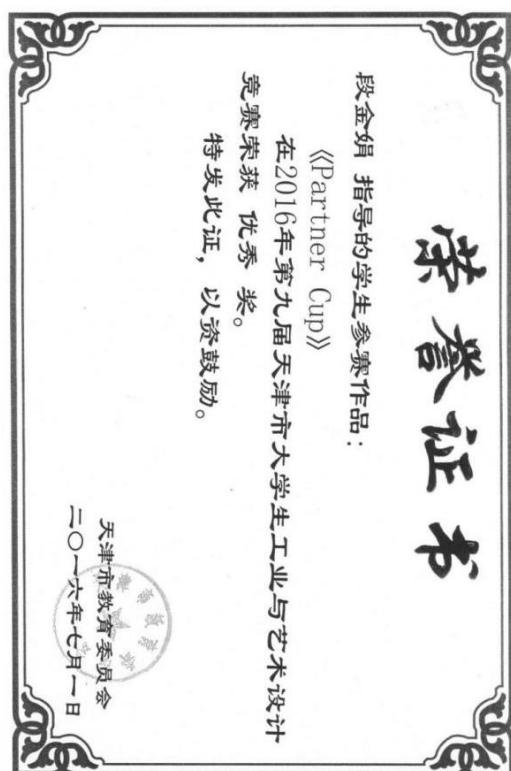 荣誉证书
段金娟 指导的学生参赛作品：
《Partner Cup》
在2016年第九届天津市大学生工业与艺术设计
竞赛荣获 优秀 奖。
特发此证，以资鼓励。
天津市教育委员会
二〇一六年七月一日